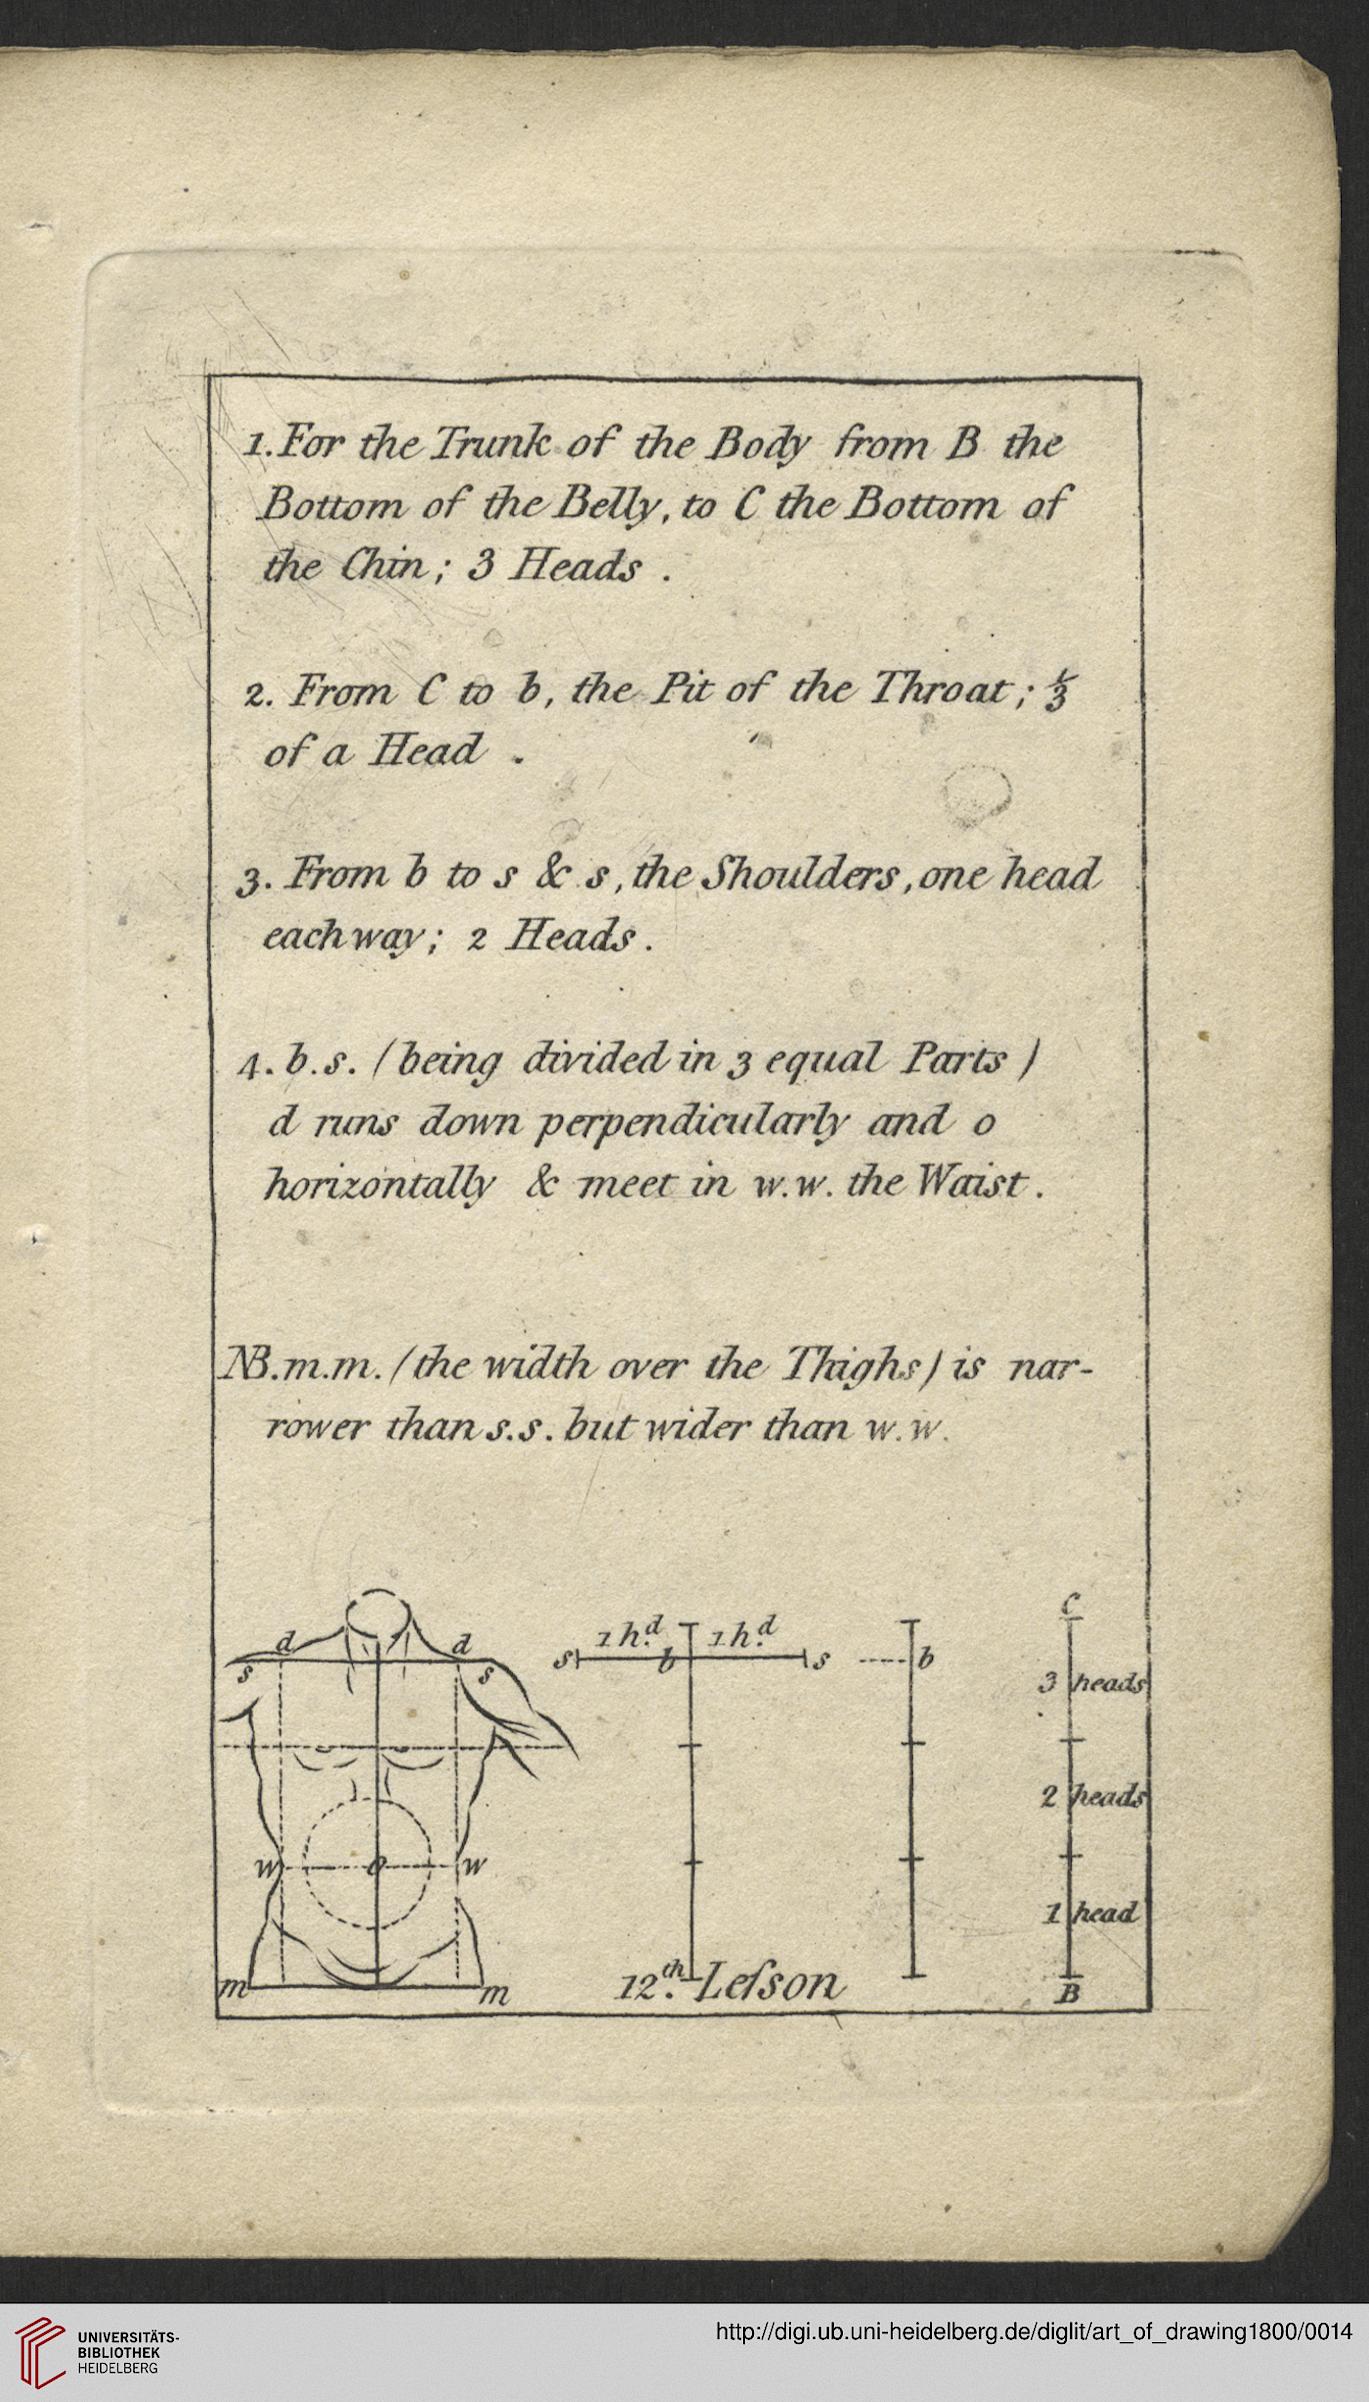 1. For the Trunk of the Body from B the
Bottom of the Belly, to C the Bottom of
the Chin; 3 Heads.
2. From C to b, the Pit of the Throat; 1/3
of a Head.
3. From b to s & s, the Shoulders, one head
each way; 2 Heads.
4. b.s. (being divided in 3 equal Parts)
d runs down perpendicularly and o
horizontally & meet in w.w. the Waist.
NB. m.m. (the width over the Thighs) is nar-
rower than s.s. but wider than w.w.
d d
s s
w o w
m m
1 h.d 1 h.d
s b s
b
C
3 heads
2 heads
1 head
B
12.th Leſson
UNIVERSITÄTS-
BIBLIOTHEK
HEIDELBERG
http://digi.ub.uni-heidelberg.de/diglit/art_of_drawing1800/0014